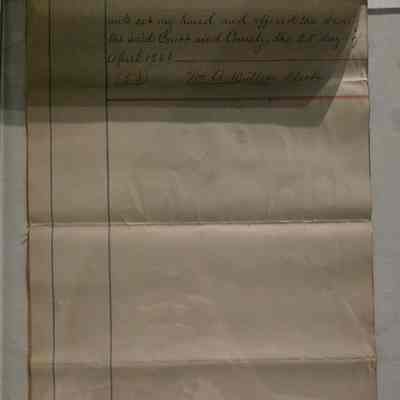 unto set my hand and affixed the seal
the said Court and County, the 28 day of
April 1861
(S.S.) Wm. A. Miller Clerk